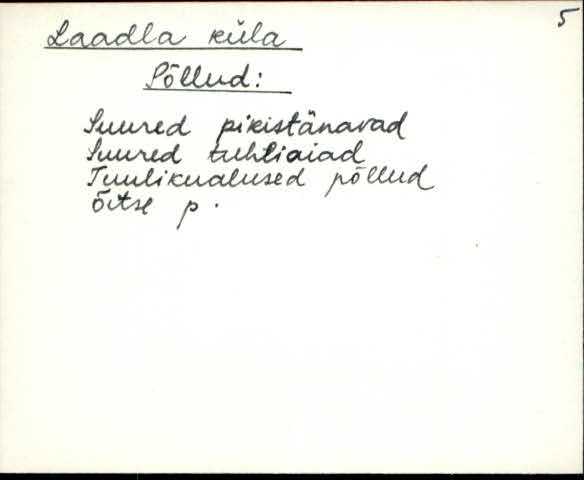 5
Laadla küla
Põllud:
Suured pikistänavad
Suured tuhtiaiad
Tuulikualused põllud
Õitse p.